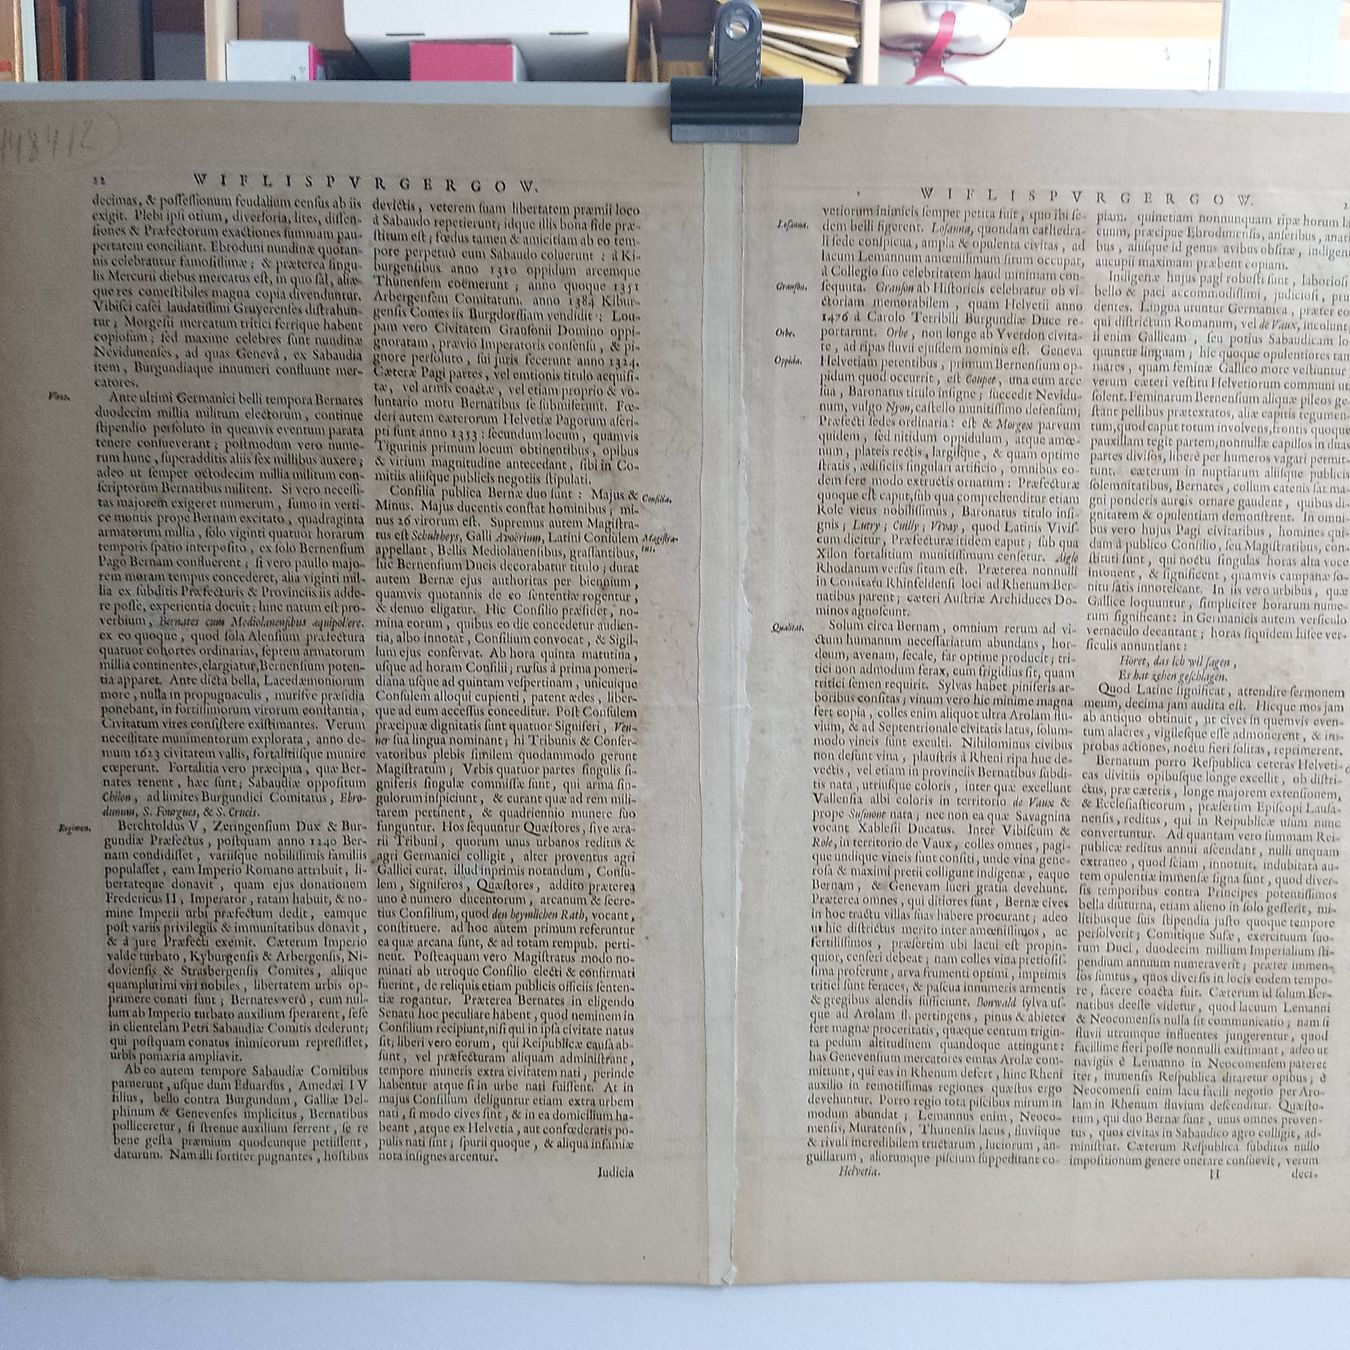 22
WIFLISPVRGERGOW.
decimas, & possessionum feudalium census ab iis
exigit. Plebi ipsi otium, diversoria, lites, dissen-
siones & Præfectorum exactiones summam pau-
pertatem conciliant. Ebroduni nundinæ quotan-
nis celebrantur famosissimæ; & præterea singu-
lis Mercurii diebus mercatus est, in quo sal, aliæ-
que res comestibiles magna copia divenduntur.
Vibisci casei laudatissimi Gruyerenses distrahun-
tur; Morgesii mercatum tritici ferrique habent
copiosum; sed maxime celebres sunt nundinæ
Nevidunenses, ad quas Genevâ, ex Sabaudia
item, Burgundiaque innumeri confluunt mer-
catores.
Vires.
Ante ultimi Germanici belli tempora Bernates
duodecim millia militum electorum, continue
stipendio persoluto in quemvis eventum parata
tenere consueverant; postmodum vero nume-
rum hunc, superadditis aliis sex millibus auxere;
adeo ut semper octodecim millia militum con-
scriptorum Bernatibus militent. Si vero necessi-
tas majorem exigeret numerum, fumo in verti-
ce montis prope Bernam excitato, quadraginta
armatorum millia, solo viginti quatuor horarum
temporis spatio interposito, ex solo Bernensium
Pago Bernam confluerent; si vero paullo majo-
rem moram tempus concederet, alia viginti mil-
lia ex subditis Præfecturis & Provinciis iis adde-
re posse, experientia docuit; hinc natum est pro-
verbium, Bernates cum Mediolanensibus æquipollere.
ex eo quoque, quod sola Alensium præfectura
quatuor cohortes ordinarias, septem armatorum
millia continentes, elargiatur, Bernensium poten-
tia apparet. Ante dicta bella, Lacedæmoniorum
more, nulla in propugnaculis, murisve præsidia
ponebant, in fortissimorum virorum constantia,
Civitatum vires consistere existimantes. Verum
necessitate munimentorum explorata, anno de-
mum 1623 civitatem vallis, fortalitiisque munire
cœperunt. Fortalitia vero præcipua, quæ Ber-
nates tenent, hæc sunt; Sabaudiæ oppositum
Chilon, ad limites Burgundici Comitatus, Ebro-
dunum, S. Fourgues, & S. Crucis.
Regimen.
Berchtoldus V, Zeringensium Dux & Bur-
gundiæ Præfectus, postquam anno 1240 Ber-
nam condidisset, variisque nobilissimis familiis
populasset, eam Imperio Romano attribuit, li-
bertateque donavit, quam ejus donationem
Fredericus II, Imperator, ratam habuit, & no-
mine Imperii urbi præfectum dedit, eamque
post variis privilegiis & immunitatibus donavit,
& à jure Præfecti exemit. Cæterum Imperio
valde turbato, Kyburgensis & Arbergensis, Ni-
doviensis & Strasbergensis Comites, aliique
quamplurimi viri nobiles, libertatem urbis op-
primere conati sunt; Bernates verò, cum nul-
lum ab Imperio turbato auxilium sperarent, sese
in clientelam Petri Sabaudiæ Comitis dederunt;
qui postquam conatus inimicorum repressisset,
urbis pomæria ampliavit.
Ab eo autem tempore Sabaudiæ Comitibus
paruerunt, usque dum Eduardus, Amedæi IV
filius, bello contra Burgundum, Galliæ Del-
phinum & Genevenses implicitus, Bernatibus
polliceretur, si strenue auxilium ferrent, se re
bene gesta præmium quodcunque petiissent,
daturum. Nam illi fortiter pugnantes, hostibus
devictis, veterem suam libertatem præmii loco
à Sabaudo repetierunt; idque illis bona fide præ-
stitum est; fœdus tamen & amicitiam ab eo tem-
pore perpetuò cum Sabaudo coluerunt: à Ki-
burgensibus anno 1310 oppidum arcemque
Thunensem coëmerunt; anno quoque 1351
Arbergensem Comitatum. anno 1384 Kibur-
gensis Comes iis Burgdorsiam vendidit: Lou-
pam vero Civitatem Gransonii Domino oppi-
gnoratam, prævio Imperatoris consensu, & pi-
gnore persoluto, sui juris fecerunt anno 1324.
Cæteræ Pagi partes, vel emtionis titulo acquisi-
tæ, vel armis coactæ, vel etiam proprio & vo-
luntario motu Bernatibus se submiserunt. Fœ-
deri autem cæterorum Helvetiæ Pagorum ascri-
pti sunt anno 1353: secundum locum, quamvis
Tigurinis primum locum obtinentibus, opibus
& vitium magnitudine antecedant, sibi in Co-
mitiis aliisque publicis negotiis stipulati.
Consilia publica Bernæ duo sunt: Majus &
Consilia.
Minus. Majus ducentis constat hominibus; mi-
nus 26 virorum est. Supremus autem Magistra-
tus est Schultheys, Galli Avoërium, Latini Consulem
Magistra-
tus.
appellant, Bellis Mediolanensibus, grassantibus,
hic Bernensium Ducis decorabatur titulo; durat
autem Bernæ ejus authoritas per biennium,
quamvis quotannis de eo sententiæ rogentur,
& denuo eligatur. Hic Consilio præsidet, no-
mina eorum, quibus eo die concedetur audien-
tia, albo innotat, Consilium convocat, & Sigil-
lum ejus conservat. Ab hora quinta matutina,
usque ad horam Consilii; rursus à prima pomeri-
diana usque ad quintam vespertinam, unicuique
Consulem alloqui cupienti, patent ædes, liber-
que ad eum accessus conceditur. Post Consulem
præcipuæ dignitatis sunt quatuor Signiferi, Ven-
ner sua lingua nominant; hi Tribunis & Conser-
vatoribus plebis similem quodammodo gerunt
Magistratum; Vrbis quatuor partes singulis si-
gniferis singulæ commissæ sunt, qui arma sin-
gulorum inspiciunt, & curant quæ ad rem mili-
tarem pertinent, & quadriennio munere suo
funguntur. Hos sequuntur Quæstores, sive æra-
rii Tribuni, quorum unus urbanos reditus &
agri Germanici colligit, alter proventus agri
Gallici curat. illud inprimis notandum, Consu-
lem, Signiferos, Quæstores, addito præterea
uno è numero ducentorum, arcanum & secre-
tius Consilium, quod den heymlichen Rath, vocant,
constituere. ad hoc autem primum referuntur
ea quæ arcana sunt, & ad totam rempub. perti-
nent. Posteaquam vero Magistratus modo no-
minati ab utroque Consilio electi & confirmati
fuerint, de reliquis etiam publicis officiis senten-
tiæ rogantur. Præterea Bernates in eligendo
Senatu hoc peculiare habent, quod neminem in
Consilium recipiunt, nisi qui in ipsa civitate natus
sit; liberi vero eorum, qui Reipublicæ causâ ab-
sunt, vel præfecturam aliquam administrant,
tempore muneris extra civitatem nati, perinde
habentur atque si in urbe nati fuissent. At in
majus Consilium deliguntur etiam extra urbem
nati, si modo cives sint, & in ea domicilium ha-
beant, atque ex Helvetia, aut confœderatis po-
pulis nati sint; spurii quoque, & aliqua infamiæ
nota insignes arcentur.
Judicia
WIFLISPVRGERGOW.
vetiorum inimicis semper petita fuit; quo ibi se-
Losanna.
dem belli figerent. Losanna, quondam cathedra-
li sede conspicua, ampla & opulenta civitas, ad
lacum Lemannum amœnissimum situm occupat,
à Collegio suo celebritatem haud minimam con-
Granson.
sequuta. Granson ab Historicis celebratur ob vi-
ctoriam memorabilem, quam Helvetii anno
1476 à Carolo Terribili Burgundiæ Duce re-
Orbe.
portarunt. Orbe, non longe ab Yverdon civita-
te, ad ripas fluvii ejusdem nominis est. Geneva
Oppida.
Helvetiam petentibus, primum Bernensium op-
pidum quod occurrit, est Coupet, una cum arce
sua, Baronatus titulo insigne; succedit Nevidu-
num, vulgo Nyon, castello munitissimo defensum;
Præfecti sedes ordinaria: est & Morges parvum
quidem, sed nitidum oppidulum, atque amœ-
num, plateis rectis, largisque, & quam optime
stratis, ædificiis singulari artificio, omnibus eo-
dem fere modo extructis ornatum: Præfecturæ
quoque est caput, sub qua comprehenditur etiam
Role vicus nobilissimus, Baronatus titulo insi-
gnis; Lutry; Cuilly; Vivay, quod Latinis Vivis-
cum dicitur, Præfecturæ itidem caput; sub qua
Xilon fortalitium munitissimum censetur. Aigle
Rhodanum versus situm est. Præterea nonnulli
in Comitatu Rhinfeldensi loci ad Rhenum Ber-
natibus parent; cæteri Austriæ Archiduces Do-
minos agnoscunt.
Qualitas.
Solum circa Bernam, omnium rerum ad vi-
ctum humanum necessariarum abundans, hor-
deum, avenam, secale, far optime producit; tri-
tici non admodum ferax, cum frigidius sit, quam
tritici semen requirit. Sylvas habet piniferis ar-
boribus consitas; vinum vero hic minime magna
fert copia, colles enim aliquot ultra Arolam flu-
vium, & ad Septentrionale civitatis latus, solum-
modo vineis sunt exculti. Nihilominus civibus
non desunt vina, plaustris à Rheni ripa huc de-
vectis, vel etiam in provinciis Bernatibus subdi-
tis nata, utriusque coloris, inter quæ excellunt
Vallensia albi coloris in territorio de Vaux &
prope Susmont nata; nec non ea quæ Savagnina
vocant Xablesii Ducatus. Inter Vibiscum &
Role, in territorio de Vaux, colles omnes, pagi-
que undique vineis sunt consiti, unde vina gene-
rosa & maximi pretii colligunt indigenæ, eaque
Bernam, & Genevam lucri gratia devehunt.
Præterea omnes, qui ditiores sunt, Bernæ cives
in hoc tractu villas suas habere procurant; adeo
ut hic districtus merito inter amœnissimos, ac
fertilissimos, præsertim ubi lacui est propin-
quior, censeri debeat; nam colles vina pretiosis-
sima proferunt, arva frumenti optimi, imprimis
tritici sunt feraces, & pascua innumeris armentis
& gregibus alendis sufficiunt. Bonwald sylva us-
que ad Arolam fl. pertingens, pinus & abietes
fert magnæ proceritatis, quæque centum trigin-
ta pedum altitudinem quandoque attingunt:
has Genevensium mercatores emtas Arolæ com-
mittunt, qui eas in Rhenum defert, hinc Rheni
auxilio in remotissimas regiones quæstus ergo
devehuntur. Porro regio tota piscibus mirum in
modum abundat; Lemannus enim, Neoco-
mensis, Muratensis, Thunensis lacus, fluviique
& rivuli incredibilem tructarum, luciorum, an-
guillarum, aliorumque piscium suppeditant co-
Helvetia.
piam. quinetiam nonnunquam ripæ horum la-
cuum, præcipue Ebrodunensis, anseribus, anati-
bus, aliisque id genus avibus obsitæ, indigenis
aucupii maximam præbent copiam.
Indigenæ hujus pagi robusti sunt, laboriosi,
bello & paci accommodissimi, judiciosi, pru-
dentes. Lingua utuntur Germanica, præter eos
qui districtum Romanum, vel de Vaux, incolunt;
ii enim Gallicam, seu potius Sabaudicam lo-
quuntur linguam; hic quoque opulentiores tam
mares, quam feminæ Gallico more vestiuntur;
verum cæteri vestitu Helvetiorum communi uti
solent. Feminarum Bernensium aliquæ pileos ge-
stant pellibus prætextatos, aliæ capitis tegumen-
tum, quod caput totum involvens, frontis quoque
pauxillam tegit partem, nonnullæ capillos in duas
partes divisos, liberè per humeros vagari permit-
tunt. cæterum in nuptiarum aliisque publicis
solemnitatibus, Bernates, collum catenis sat ma-
gni ponderis aureis ornare gaudent, quibus di-
gnitatem & opulentiam demonstrent. In omni-
bus vero hujus Pagi civitatibus, homines qui-
dam à publico Consilio, seu Magistratibus, con-
stituti sunt, qui noctu singulas horas alta voce
intonent, & significent, quamvis campanæ so-
nitu satis innotescant. In iis vero urbibus, quæ
Gallice loquuntur, simpliciter horarum nume-
rum significant: in Germanicis autem versiculo
vernaculo decantant; horas siquidem hisce ver-
siculis annuntiant:
Horet, das Ich wil sagen,
Es hat zehen geschlagen.
Quod Latine significat, attendite sermonem
meum, decima jam audita est. Hicque mos jam
ab antiquo obtinuit, ut cives in quemvis even-
tum alacres, vigilesque esse admonerent, & im-
probas actiones, noctu fieri solitas, reprimerent.
Bernatum porro Respublica ceteras Helveti-
cas divitiis opibusque longe excellit, ob distri-
ctus, præ cæteris, longe majorem extensionem,
& Ecclesiasticorum, præsertim Episcopi Lausa-
nensis, reditus, qui in Reipublicæ usum nunc
convertuntur. Ad quantam vero summam Rei-
publicæ reditus annui ascendant, nulli unquam
extraneo, quod sciam, innotuit, indubitata au-
tem opulentiæ immensæ signa sunt, quod diver-
sis temporibus contra Principes potentissimos
bella diuturna, etiam alieno in solo gesserit, mi-
litibusque suis stipendia justo quoque tempore
persolverit; Comitique Susæ, exercituum suo-
rum Duci, duodecim millium Imperialium sti-
pendium annuum numeraverit; præter immen-
sos sumtus, quos diversis in locis eodem tempo-
re, facere coacta fuit. Cæterum id solum Ber-
natibus deesse videtur, quod lacuum Lemanni
& Neocomensis nulla sit communicatio; nam si
fluvii utrumque influentes jungerentur, quod
facillime fieri posse nonnulli existimant, adeo ut
navigiis è Lemanno in Neocomensem pateret
iter, immensis Respublica ditaretur opibus; è
Neocomensi enim lacu facili negotio per Aro-
lam in Rhenum fluvium descenditur. Quæsto-
rum, qui duo Bernæ sunt, unus omnes proven-
tus, quos civitas in Sabaudico agro colligit, ad-
ministrat. Cæterum Respublica subditos nullo
impositionum genere onerare consuevit, verum
H
deci-